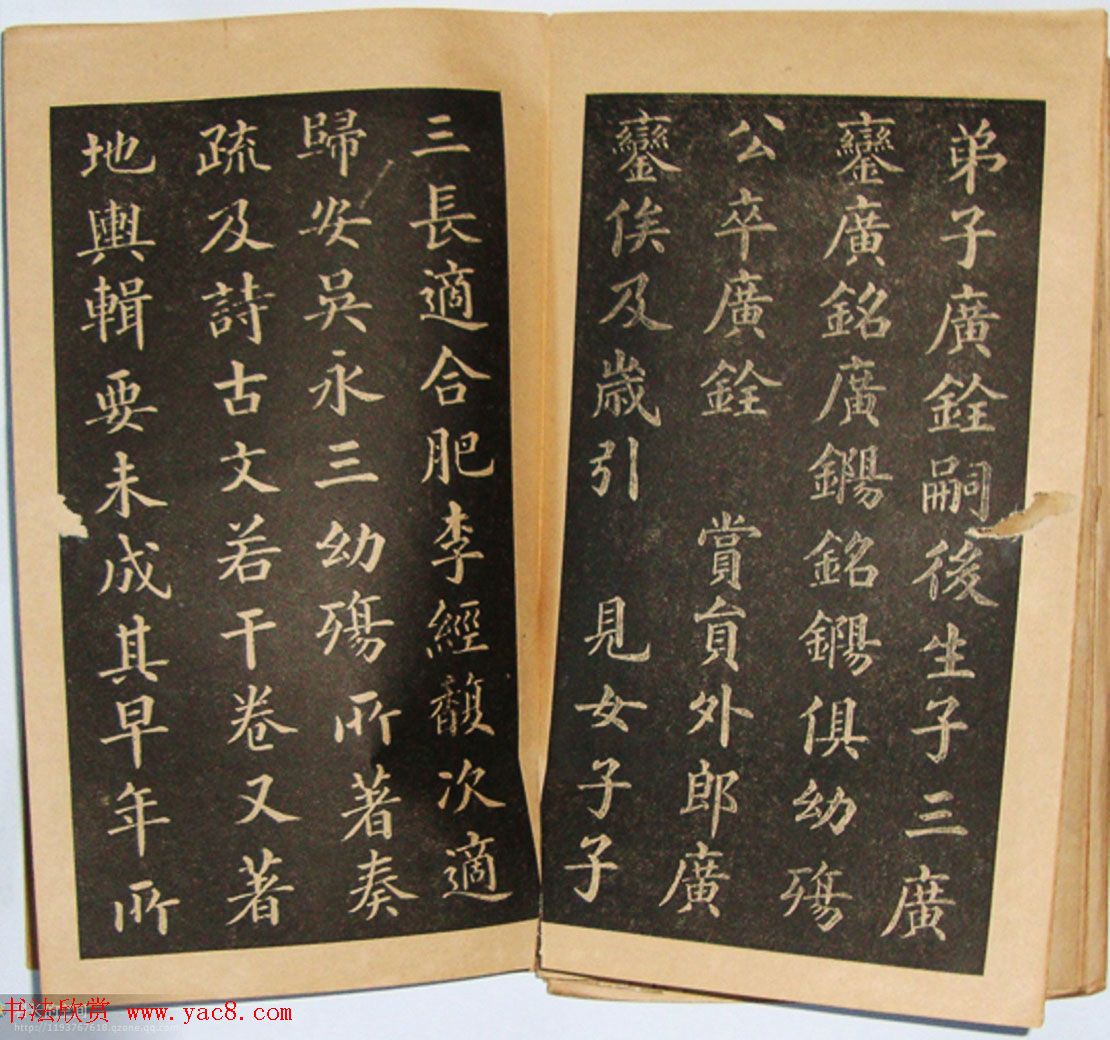 弟子廣銓嗣後生子三廣
鑾廣銘廣鐊銘鐊俱幼殤
公卒廣銓 賞員外郎廣
鑾俟及歲引 見女子子
三長適合肥李經馥次適
歸安吳永三幼殤所著奏
疏及詩古文若干卷又著
地輿輯要未成其早年所
书法欣赏 www.yac8.com
http://1193767618.qzone.qq.com